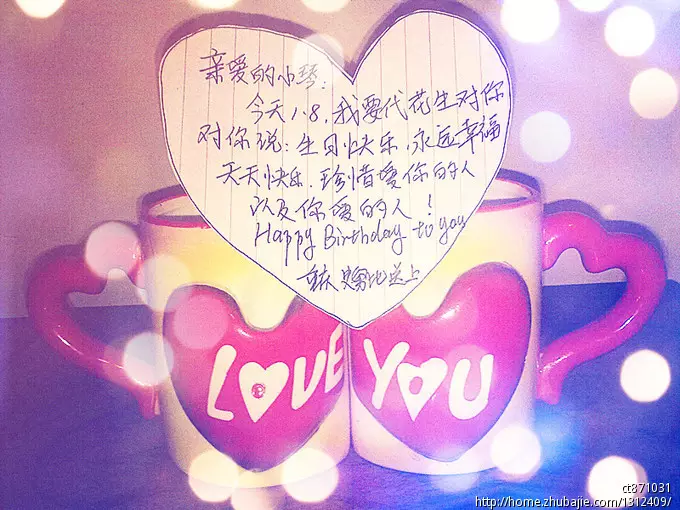 亲爱的小琴：
今天1.8，我要代花生对你
对你说：生日快乐，永远幸福
天天快乐，珍惜爱你的人
以及你爱的人！
Happy Birthday to you
重庆 送上
LOVE YOU
ct871031
http://home.zhubajie.com/1312409/